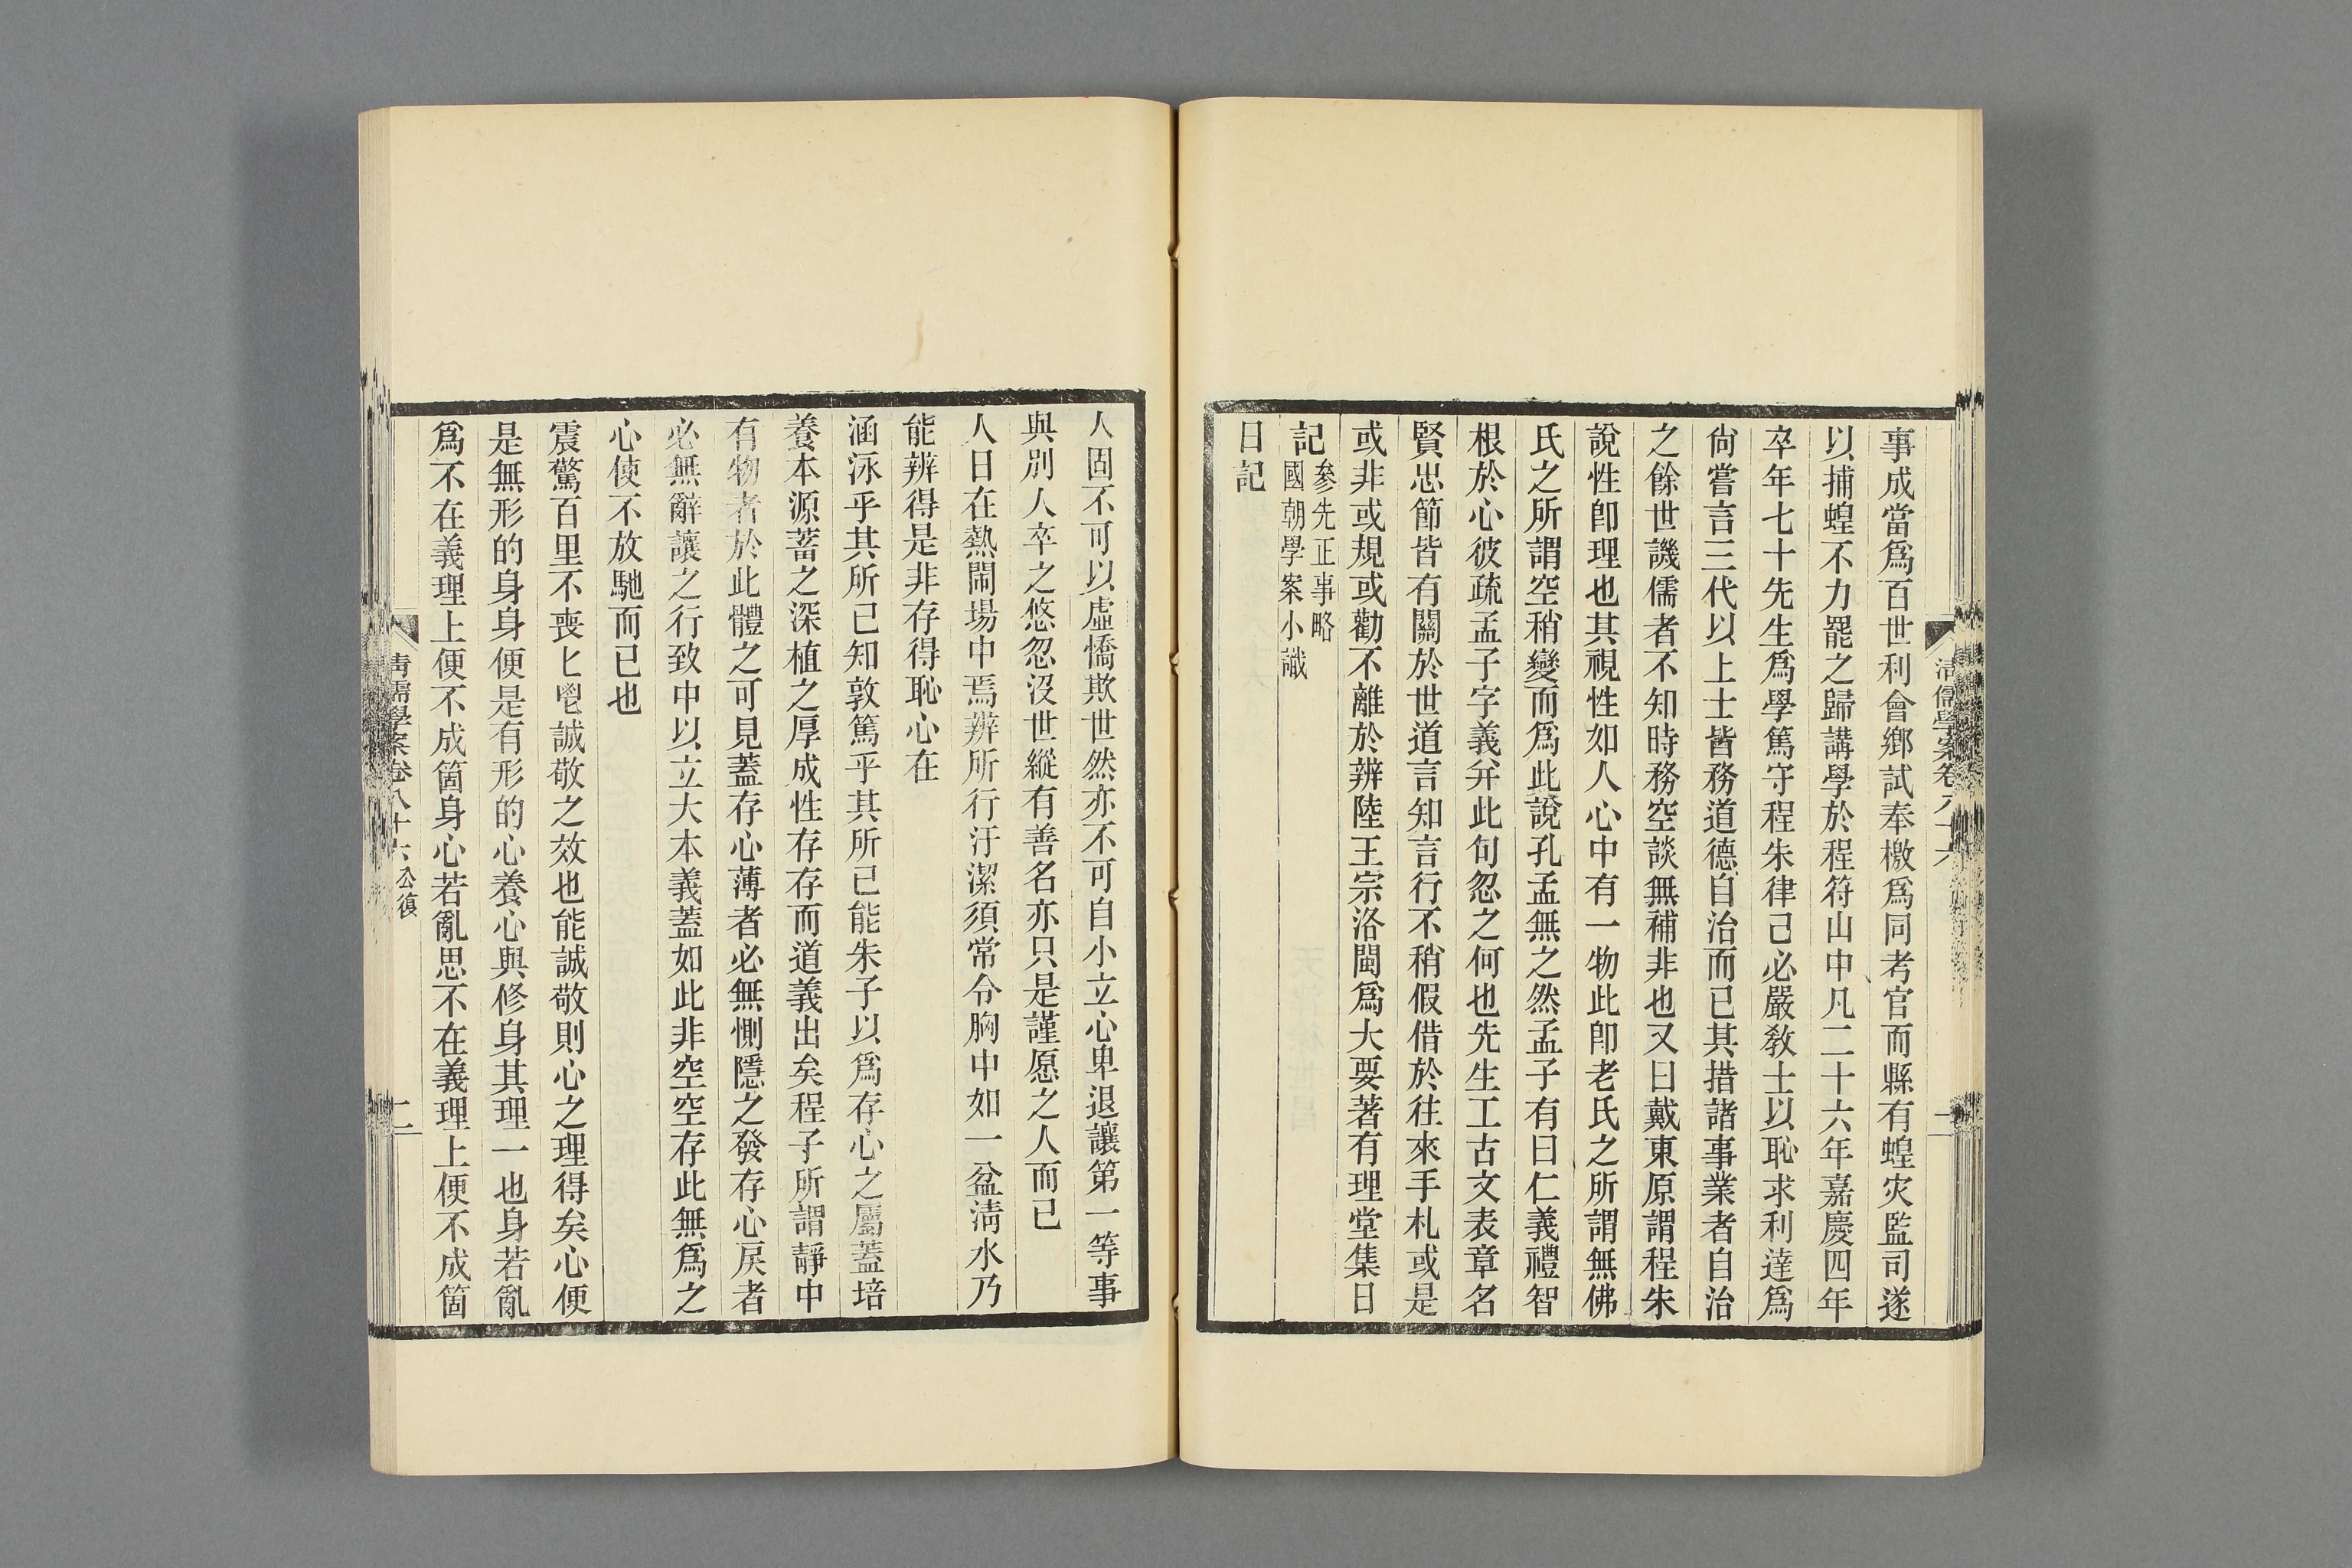 事成當爲百世利會鄉試奉檄爲同考官而縣有蝗灾監司遂
以捕蝗不力罷之歸講學於程符山中凡二十六年嘉慶四年
卒年七十先生爲學篤守程朱律己必嚴敎士以恥求利達爲
尙嘗言三代以上士皆務道德自治而已其措諸事業者自治
之餘世譏儒者不知時務空談無補非也又曰戴東原謂程朱
說性卽理也其視性如人心中有一物此卽老氏之所謂無佛
氏之所謂空稍變而爲此說孔孟無之然孟子有曰仁義禮智
根於心彼疏孟子字義幷此句忽之何也先生工古文表章名
賢忠節皆有關於世道言知言行不稍假借於往來手札或是
或非或規或勸不離於辨陸王宗洛閩爲大要著有理堂集日
記參先正事略
國朝學案小識
日記
人固不可以虛憍欺世然亦不可自小立心卑退讓第一等事
與別人卒之悠忽沒世縱有善名亦只是謹愿之人而已
人日在熱鬧場中焉辨所行汙潔須常令胸中如一盆淸水乃
能辨得是非存得恥心在
涵泳乎其所已知敦篤乎其所已能朱子以爲存心之屬蓋培
養本源蓄之深植之厚成性存存而道義出矣程子所謂靜中
有物者於此體之可見蓋存心薄者必無惻隱之發存心戾者
必無辭讓之行致中以立大本義蓋如此非空空存此無爲之
心使不放馳而已也
震驚百里不喪匕鬯誠敬之效也能誠敬則心之理得矣心便
是無形的身身便是有形的心養心與修身其理一也身若亂
爲不在義理上便不成箇身心若亂思不在義理上便不成箇
淸儒學案卷八十六公復
二